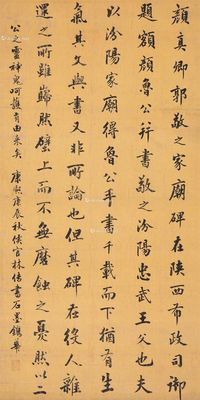 颜真卿郭敬之家廟碑在陕西布政司御
題額顏魯公并書敬之汾陽忠武王父也夫
以汾陽家廟得魯公手書千載而下猶有生
氣其文與書又非所論也但其碑在後人雖
還之所雖巋然壁上而不無磨蝕之憂然以二
公之靈神鬼呵護有由來矣 康熙庚辰秋侯官林佶書石墨鐫華